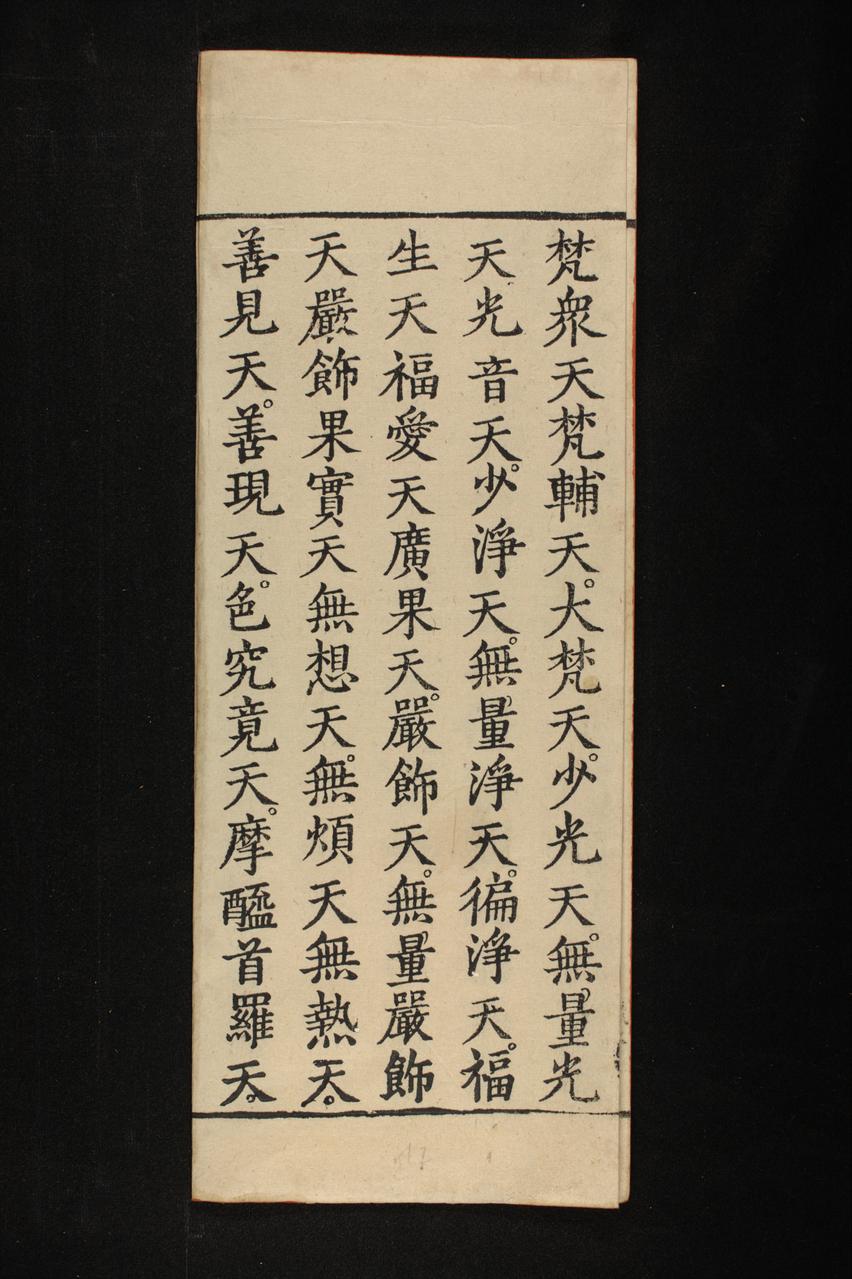 梵衆天梵輔天。大梵天。少光天。無量光
天光音天。少淨天。無量淨天。徧淨天。福
生天福愛天廣果天。嚴飾天。無量嚴飾
天嚴飾果實天無想天。無煩天無熱天。
善見天。善現天。色究竟天。摩醯首羅天。